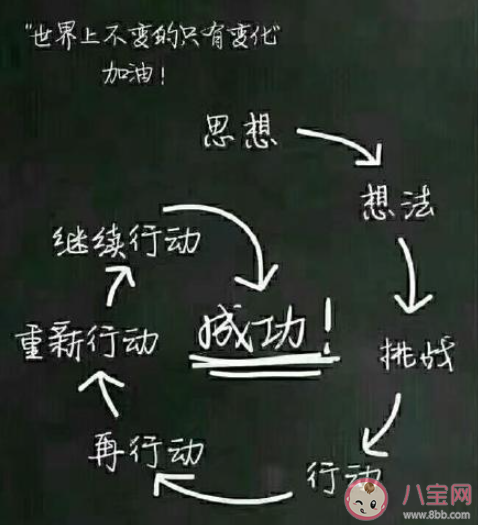 "世界上不变的只有变化"
加油！
思想
想法
挑战
行动
再行动
重新行动
继续行动
成功！
八宝网
www.8bb.com